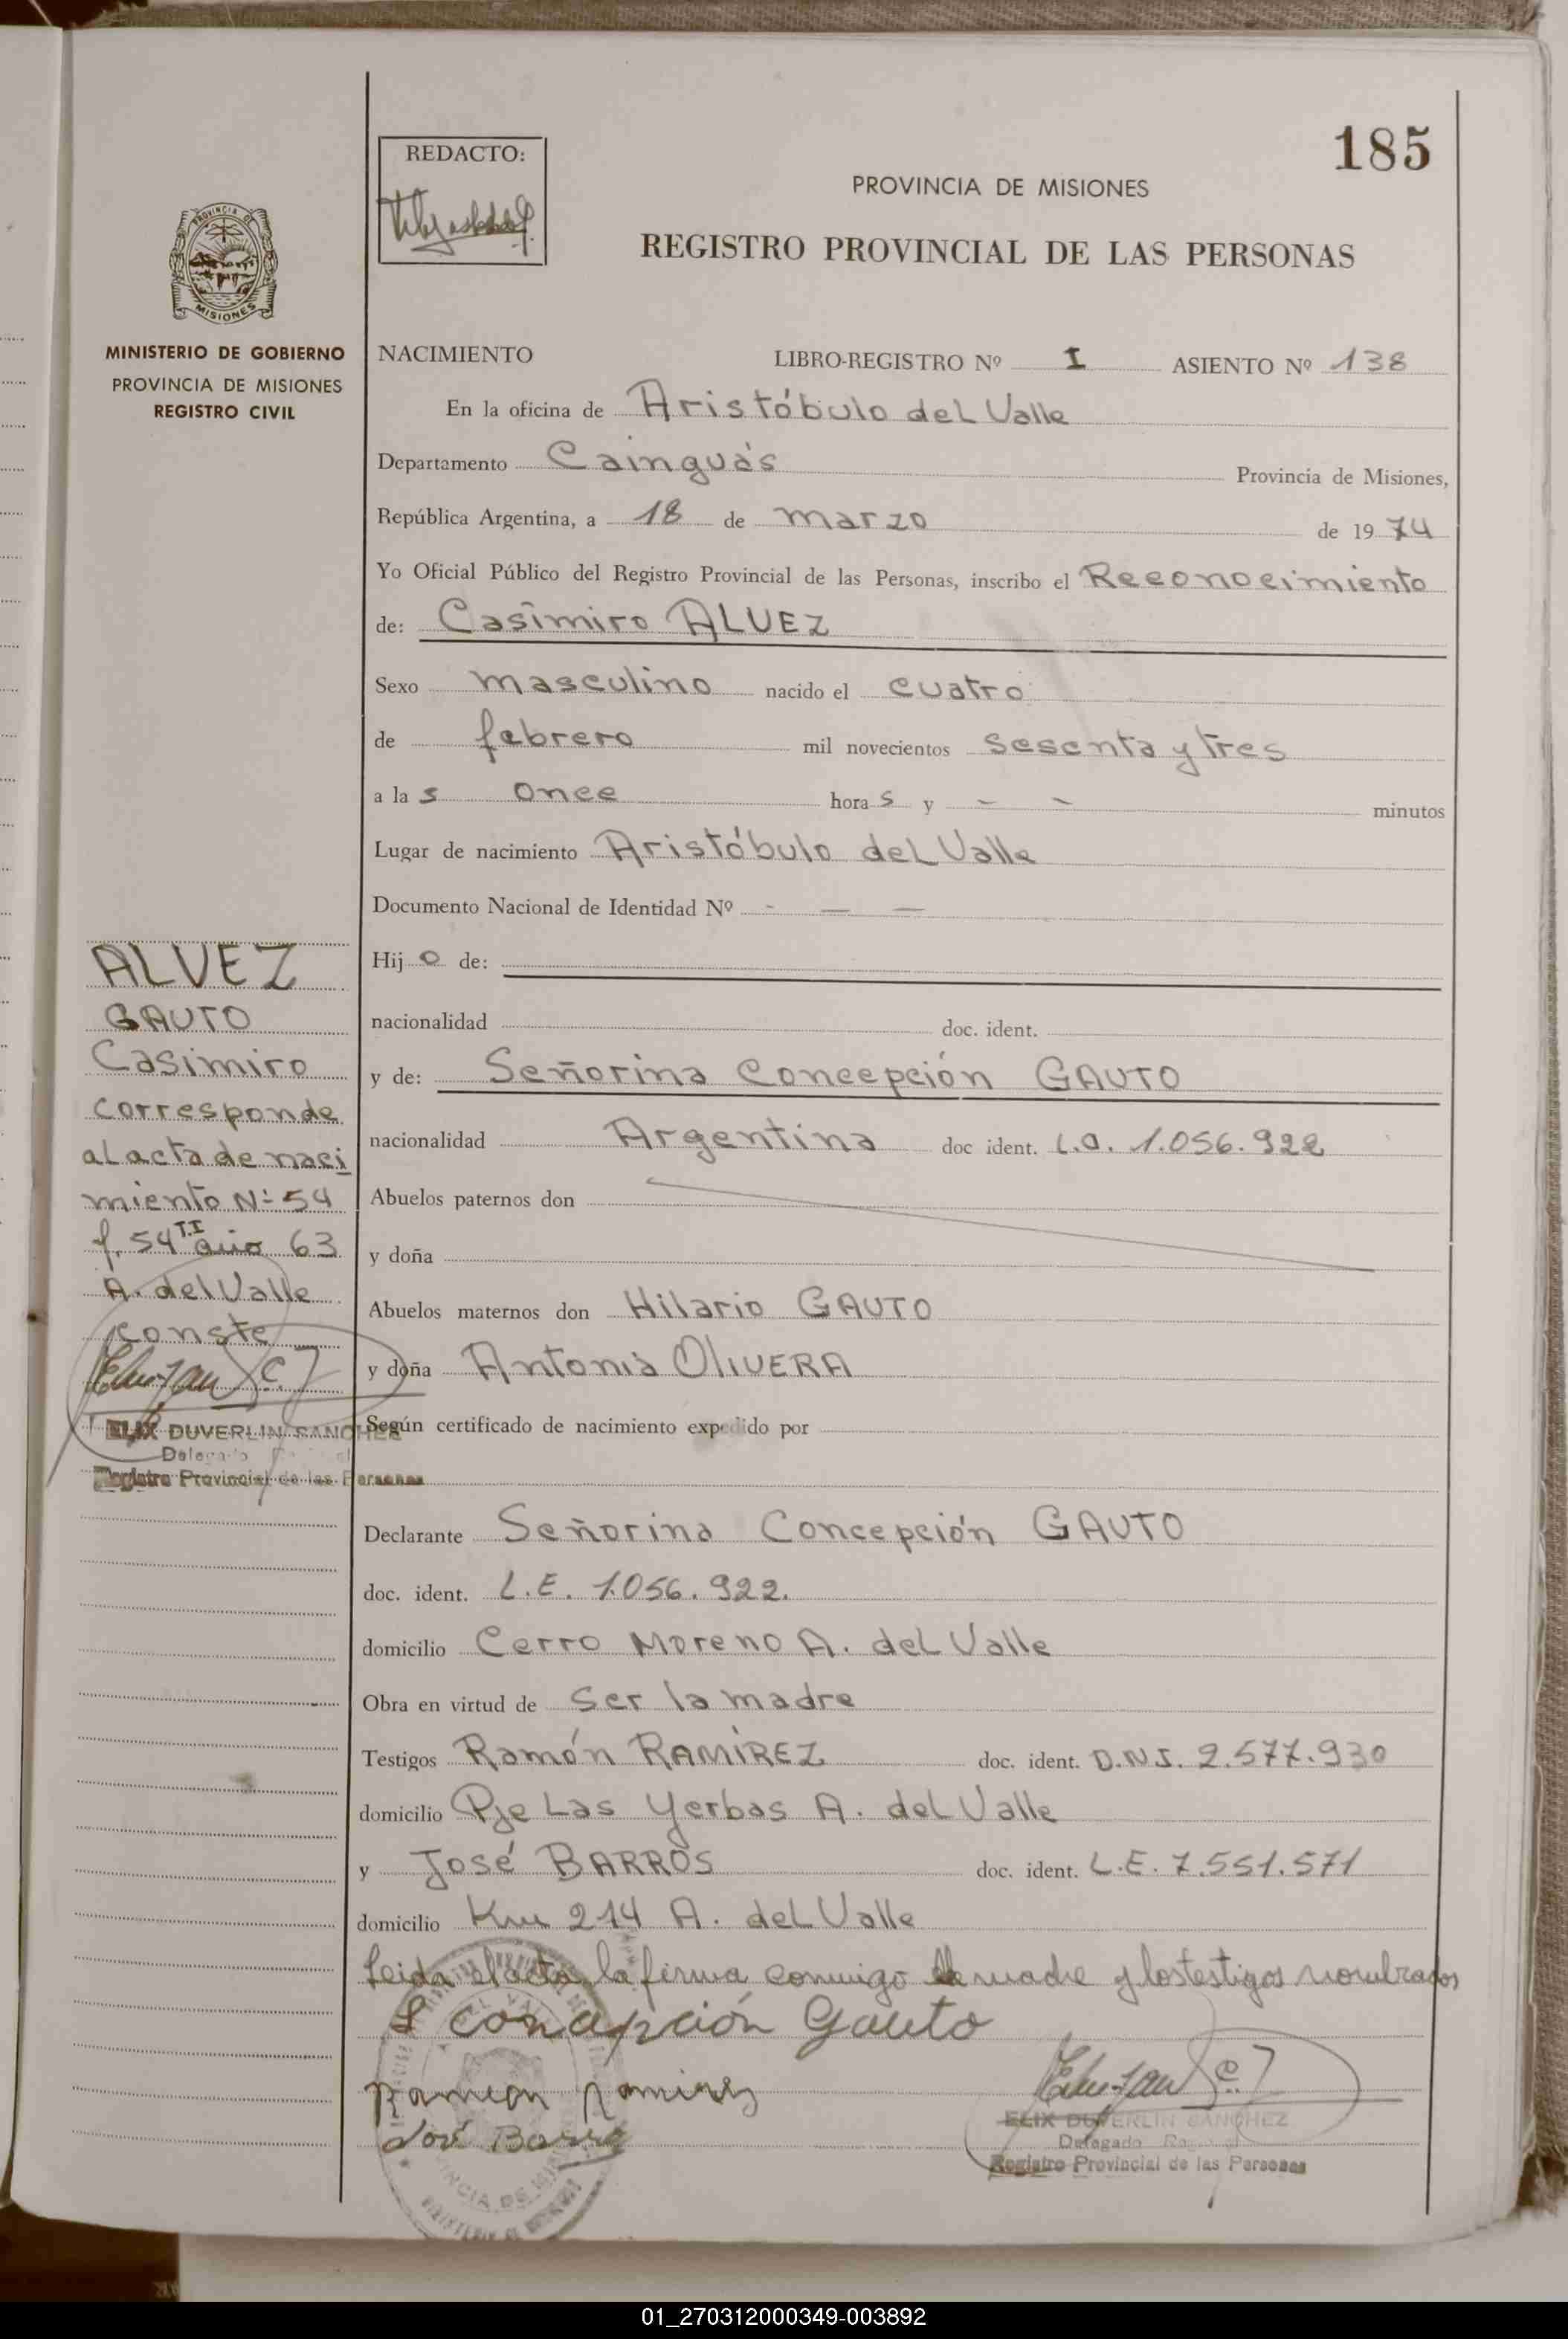 185
REDACTO:
PROVINCIA DE MISIONES
REGISTRO PROVINCIAL DE LAS PERSONAS
PROVINCIA DE
MISIONES
MINISTERIO DE GOBIERNO
PROVINCIA DE MISIONES
REGISTRO CIVIL
NACIMIENTO LIBRO-REGISTRO Nº I ASIENTO Nº 138
En la oficina de Aristóbulo del Valle
Departamento Cainguás Provincia de Misiones,
República Argentina, a 18 de marzo de 1974
Yo Oficial Público del Registro Provincial de las Personas, inscribo el Reconocimiento
de: Casimiro ALVEZ
Sexo masculino nacido el cuatro
de febrero mil novecientos sesenta y tres
a las once horas y - - minutos
Lugar de nacimiento Aristóbulo del Valle
Documento Nacional de Identidad Nº - — —
Hijo de:
nacionalidad doc. ident.
y de: Señorina Concepción GAUTO
nacionalidad Argentina doc ident. L.C. 1.056.922
Abuelos paternos don
y doña
Abuelos maternos don Hilario GAUTO
y doña Antonia OLIVERA
Según certificado de nacimiento expedido por
Declarante Señorina Concepción GAUTO
doc. ident. L.E. 1.056.922.
domicilio Cerro Moreno A. del Valle
Obra en virtud de ser la madre
Testigos Ramón RAMÍREZ doc. ident. D.N.I. 2.577.930
domicilio Pje Las Yerbas A. del Valle
y José BARROS doc. ident. L.E. 7.551.571
domicilio Km 214 A. del Valle
Leida el acta, la firma conmigo la madre y los testigos nombrados
S Concepción Gauto
Ramon Ramirez
José Barro
ELIX DUVERLIN SANCHEZ
Delegado
Registro Provincial de las Personas
ALVEZ
GAUTO
Casimiro
corresponde
al acta de naci
miento Nº 54
f. 54 T.I año 63
A. del Valle
conste
ELIX DUVERLIN SANCHEZ
Delegado
Registro Provincial de las Personas
01_270312000349-003892